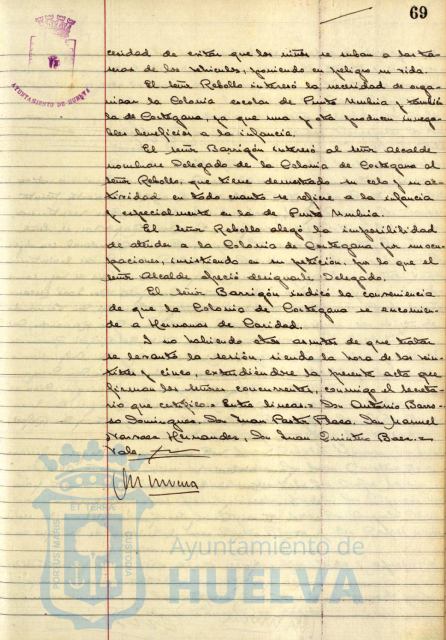 69
AYUNTAMIENTO DE HUELVA
cesidad de evitar que los niños se suban a las tra-
seras de los vehículos, poniendo en peligro su vida.
El señor Rebollo interesó la necesidad de orga-
nizar la Colonia escolar de Punta Umbría y también
la de Cortegana, ya que una y otra producen innega-
bles beneficios a la infancia.
El señor Barrigón interesó al señor Alcalde
nombrase Delegado de la Colonia de Cortegana al
señor Rebollo, que tiene demostrado su celo y su ac-
tividad en todo cuanto se refiere a la infancia
y especialmente en la de Punta Umbría.
El señor Rebollo alegó la imposibilidad
de atender a la Colonia de Cortegana por sus ocu-
paciones, insistiendo en su petición, por lo que el
señor Alcalde ofreció designarle Delegado.
El señor Barrigón indicó la conveniencia
de que la Colonia de Cortegana se encomien-
de a Hermanas de Caridad.
Y no habiendo otros asuntos de que tratar
se levantó la sesión, siendo la hora de las vein-
titres y cinco, extendiéndose la presente acta que
firman los señores concurrentes, conmigo el Secreta-
rio que certifico.= Entre líneas.= Don Antonio Barro-
so Dominguez. Don Juan Don Manuel
Narvaez Hernandez, Don Juan Quintero Baez.=
Vale.
PORTUS MARIS ET TERRÆ CUSTODIA
Ayuntamiento de
HUELVA